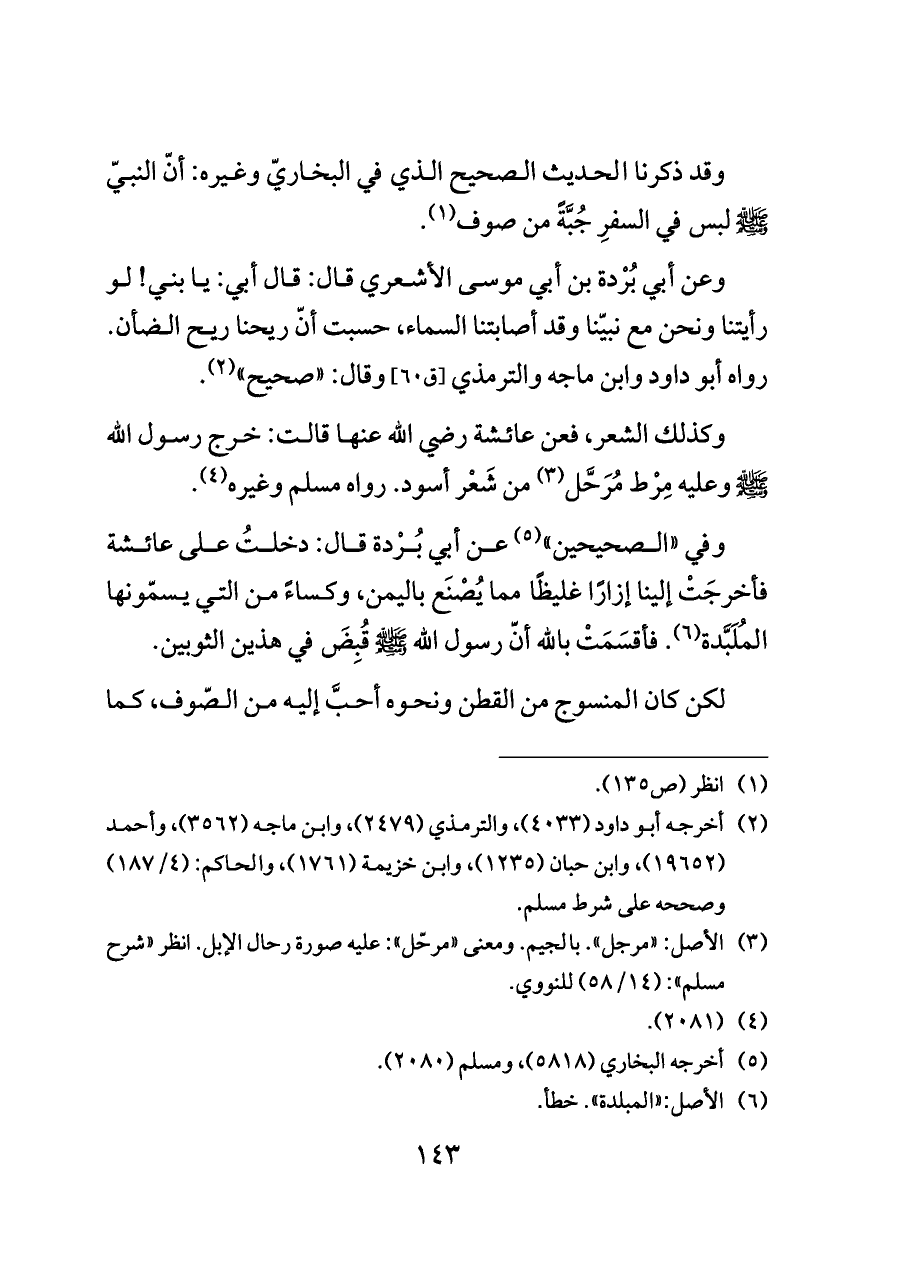 وقد ذكرنا الحديث الصحيح الذي في البخاريّ وغيره: أنّ النبيّ
ﷺ لبس في السفرِ جُبَّةً من صوف(١).
وعن أبي بُرْدة بن أبي موسى الأشعري قال: قال أبي: يا بني! لو
رأيتنا ونحن مع نبيّنا وقد أصابتنا السماء، حسبت أنّ ريحنا ريح الضأن.
رواه أبو داود وابن ماجه والترمذي [ق٦٠] وقال: «صحيح»(٢).
وكذلك الشعر، فعن عائشة رضي الله عنها قالت: خرج رسول الله
ﷺ وعليه مِرْط مُرَحَّل(٣) من شَعْر أسود. رواه مسلم وغيره(٤).
وفي «الصحيحين»(٥) عن أبي بُرْدة قال: دخلتُ على عائشة
فأخرجَتْ إلينا إزارًا غليظًا مما يُصْنَع باليمن، وكساءً من التي يسمّونها
المُلَبَّدة(٦). فأقسَمَتْ بالله أنّ رسول الله ﷺ قُبِضَ في هذين الثوبين.
لكن كان المنسوج من القطن ونحوه أحبَّ إليه من الصّوف، كما
(١) انظر (ص١٣٥).
(٢) أخرجه أبو داود (٤٠٣٣)، والترمذي (٢٤٧٩)، وابن ماجه (٣٥٦٢)، وأحمد
(١٩٦٥٢)، وابن حبان (١٢٣٥)، وابن خزيمة (١٧٦١)، والحاكم: (٤/ ١٨٧)
وصححه على شرط مسلم.
(٣) الأصل: «مرجل». بالجيم. ومعنى «مرحّل»: عليه صورة رحال الإبل. انظر «شرح
مسلم»: (١٤/ ٥٨) للنووي.
(٤) (٢٠٨١).
(٥) أخرجه البخاري (٥٨١٨)، ومسلم (٢٠٨٠).
(٦) الأصل:«المبلدة». خطأ.
١٤٣